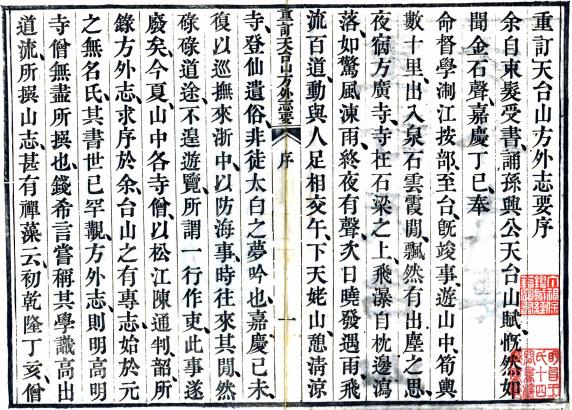 重訂天台山方外志要序
余自束髮受書、誦孫興公天台山賦、慨然如
聞金石聲、嘉慶丁巳、奉
命督學淛江、按部至台、旣竣事、遊山中、筍輿
數十里、出入泉石雲霞閒、飄然有出塵之思、
夜宿方廣寺、寺在石梁之上、飛瀑自枕邊瀉
落、如驚風凍雨、終夜有聲、次日曉發、遇雨、飛
流百道、動與人足相交、午下天姥山、憩淸涼
重訂天台山方外志要 序 一
寺、登仙遺俗、非徒太白之夢吟也、嘉慶己未、
復以巡撫來浙中、以防海事、時往來其閒、然
碌碌道途、不遑遊覽、所謂一行作吏、此事遂
廢矣、今夏、山中各寺僧、以松江陳通判韶所
錄方外志、求序於余、台山之有專志、始於元
之無名氏、其書世已罕覯、方外志、則明高明
寺僧無盡所撰也、錢希言嘗稱其學識高出
道流、所撰山志、甚有禪藻云、初乾隆丁亥、僧